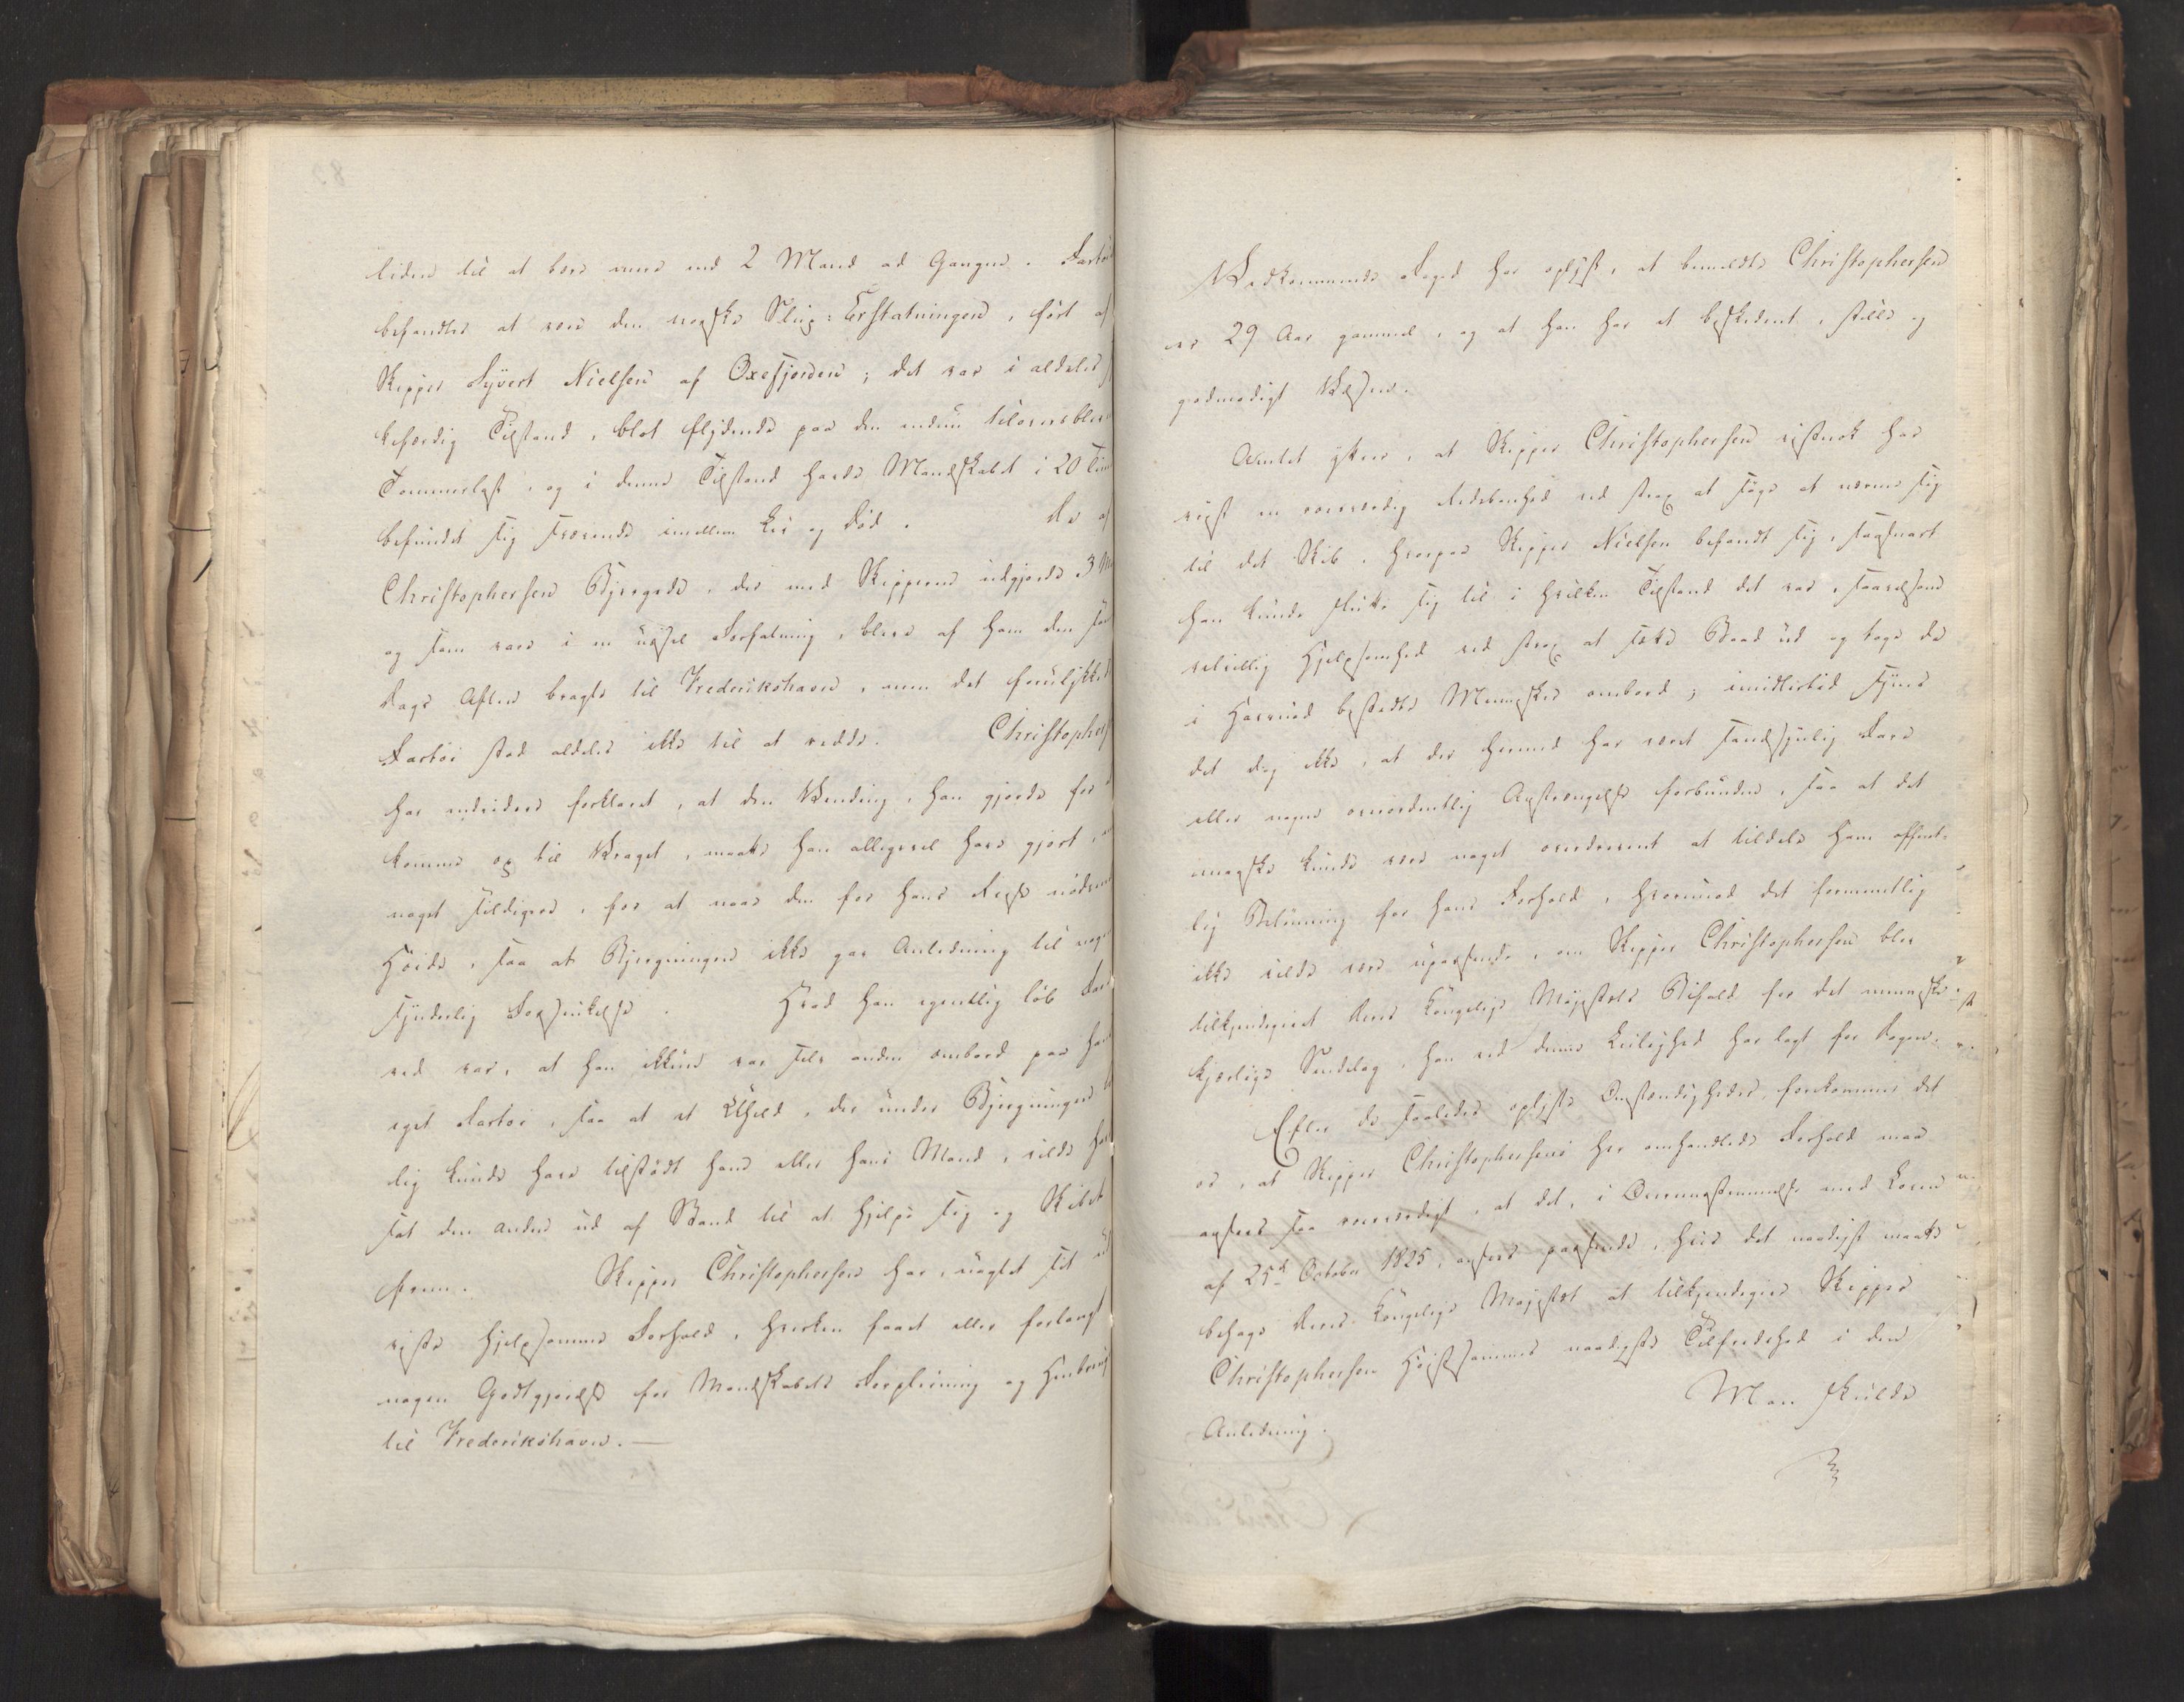 liden til at bære mere end 2 Mand ad Gangen. Fartøi
befandtes at være den norske Slup: Erstatningen, ført af
Skipper Syvert Nielsen af Oxefjorden; det var i aldeles
kefærdig Tilstand, blot flydende paa den endnu tiloversblevne
Tommerlast, og i denne Tilstand havde Mandskabet i 20 Tim
befundet sig svævende imellem Liv og Død. De af
Christophersen Bjergede, der med Skipperen udgjorde 3 M
og som vare i en ussel Forfatning, bleve af ham den
Dags Aften bragte til Frederikshavn, men det forulykkede
Fartøi stod aldeles ikke til at redde. Christophers
har endvidere forklaret, at den Vending, han gjorde for
komme op til Vraget, maatte han alligevel have gjort,
noget tidligere, for at naae den for hans Reise nødven
Høide, saa at Bjergningen ikke gav Anledning til nogen
synderlig Forsinkelse. Hvad han egentlig løb Fare
ved var, at han ikkun var selv anden ombord paa
eget Fartøi, saa at et Uheld, der under Bjergningen
lig kunde have tilstødt ham eller hans Mand, vilde have
sat den anden ud af Stand til at hjelpe sig og Skibet
frem. Skipper Christophersen har, uagtet sit
viste hjelpsomme Forhold, hverken faaet eller forlangt
nogen Godtgjørelse for Mandskabets Forpleining og Henbring
til Frederikshavn. —
Vedkommende Foged har oplyst, at bemeldte Christophersen
er 29 Aar gammel, og at han har et beskedent, stille og
godmodigt Væsen.
Amtet yttrer, at Skipper Christophersen vistnok har
viist en roesværdig Redebonhed ved strax at søge at nærme sig
til det Skib, hvorpaa Skipper Nielsen befandt sig, saasnart
han kunde slutte sig til i hvilken Tilstand det var, saavelsom
velvillig Hjelpsomhed ved strax at sætte Baad ud og tage de
i Havsnød bestedte Mennesker ombord; imidlertid synes
det dog ikke, at der hermed har været sandsynlig Fare
eller nogen overordentlig Anstrængelse forbunden, saa at det
maaske kunde være noget overdrevent at tildele ham offent-
lig Belønning for hans Forhold, hvorimod det formeentlig
ikke vilde være upassende, om Skipper Christophersen blev
tilkjendegivet Deres Kongelige Majestæts Bifald for det menneske-
kjærlige Sindelag, han ved denne Leilighed har lagt for Dagen.
Efter de saaledes oplyste Omstændigheder forekommer det
os, at Skipper Christophersens her omhandlede Forhold maa
ansees saa roesværdigt, at det, i Overensstemmelse med Loven
af 25de October 1825, ansees passende, hvis det naadigst maatte
behage Deres Kongelige Majestæt at tilkjendegive Skipper
Christophersen Høistsammes naadigste Tilfredshed i den
Anledning. Man skulde